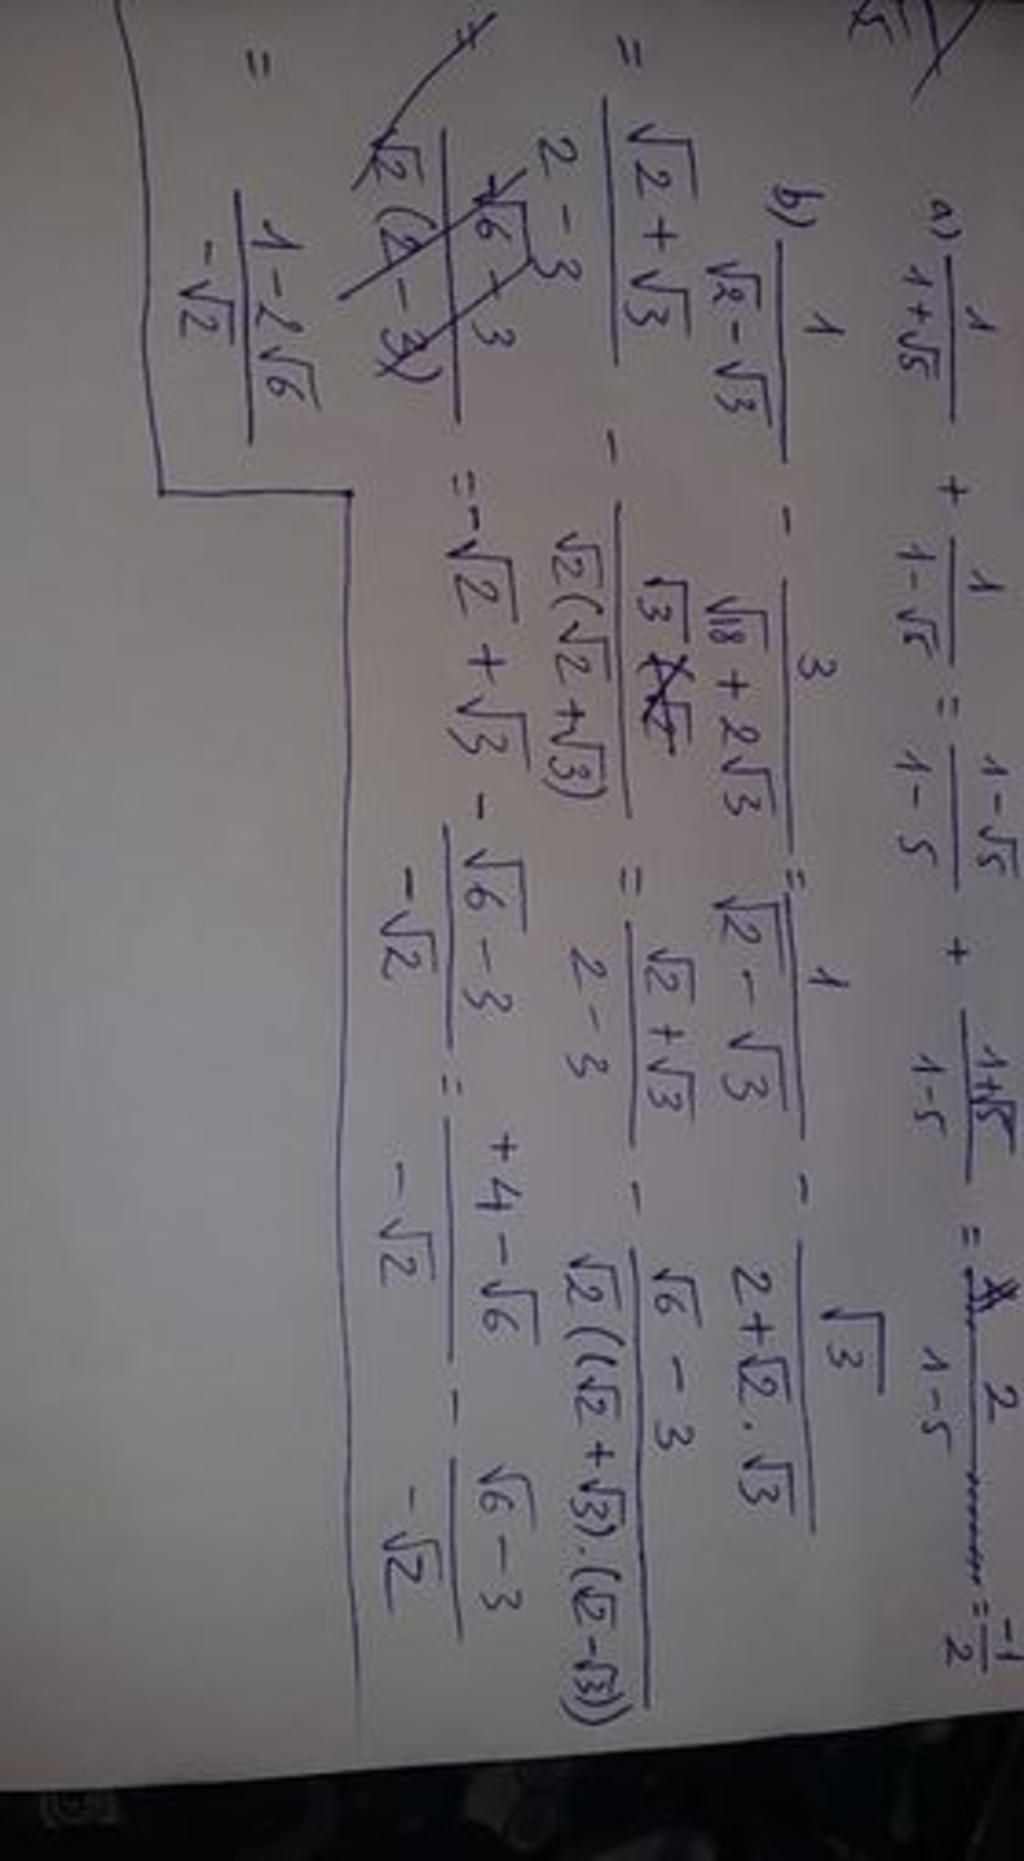 a) 1/(1+√5) + 1/(1-√5) = (1-√5)/(1-5) + (1+√5)/(1-5) = 2/(1-5) = -1/2
b) 1/(√2-√3) - 3/(√18+2√3) = 1/(√2-√3) - √3/(2+√2·√3)
= (√2+√3)/(2-3) - √3/(√2(√2+√3)) = (√2+√3)/(2-3) - (√6-3)/(√2((√2+√3)·(√2-√3))
= -√2+√3 - (√6-3)/(-√2) = (+4-√6)/(-√2) - (√6-3)/(-√2)
= (1-2√6)/(-√2)